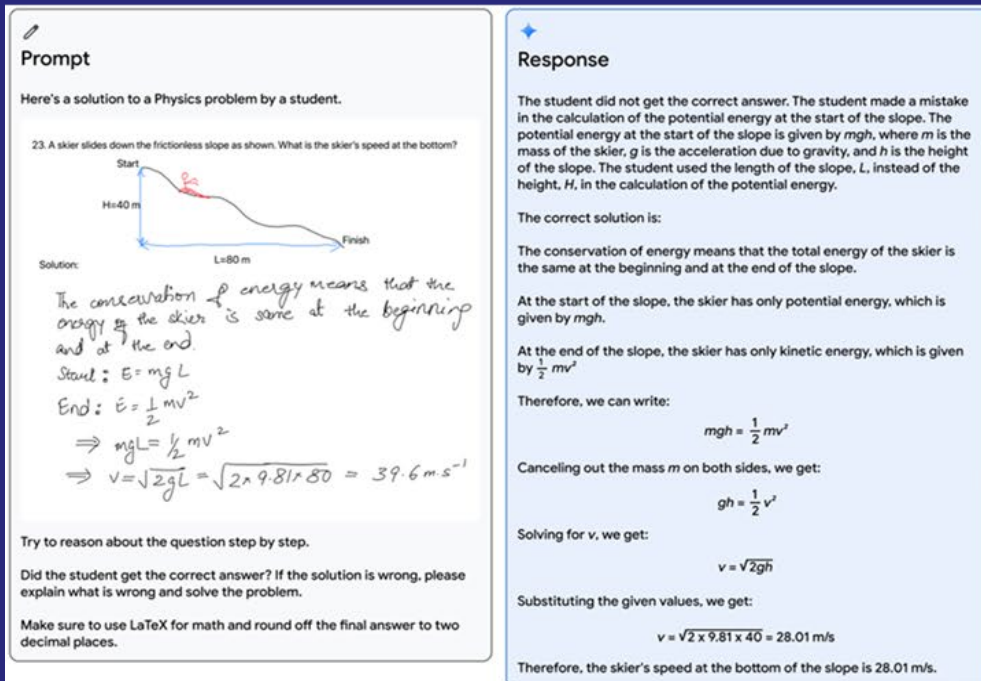 Prompt
Here's a solution to a Physics problem by a student.
23. A skier slides down the frictionless slope as shown. What is the skier's speed at the bottom?
Start
H=40 m
Finish
L=80 m
Solution:
The conservation of energy means that the
energy of the skier is same at the beginning
and at the end.
Start: E = mgL
End: E = 1/2 mv²
⇒ mgL = 1/2 mv²
⇒ v = √2gL = √2×9.81×80 = 39.6 m·s⁻¹
Try to reason about the question step by step.
Did the student get the correct answer? If the solution is wrong, please
explain what is wrong and solve the problem.
Make sure to use LaTeX for math and round off the final answer to two
decimal places.
Response
The student did not get the correct answer. The student made a mistake
in the calculation of the potential energy at the start of the slope. The
potential energy at the start of the slope is given by mgh, where m is the
mass of the skier, g is the acceleration due to gravity, and h is the height
of the slope. The student used the length of the slope, L, instead of the
height, H, in the calculation of the potential energy.
The correct solution is:
The conservation of energy means that the total energy of the skier is
the same at the beginning and at the end of the slope.
At the start of the slope, the skier has only potential energy, which is
given by mgh.
At the end of the slope, the skier has only kinetic energy, which is given
by 1/2 mv²
Therefore, we can write:
mgh = 1/2 mv²
Canceling out the mass m on both sides, we get:
gh = 1/2 v²
Solving for v, we get:
v = √2gh
Substituting the given values, we get:
v = √2 x 9.81 x 40 = 28.01 m/s
Therefore, the skier's speed at the bottom of the slope is 28.01 m/s.